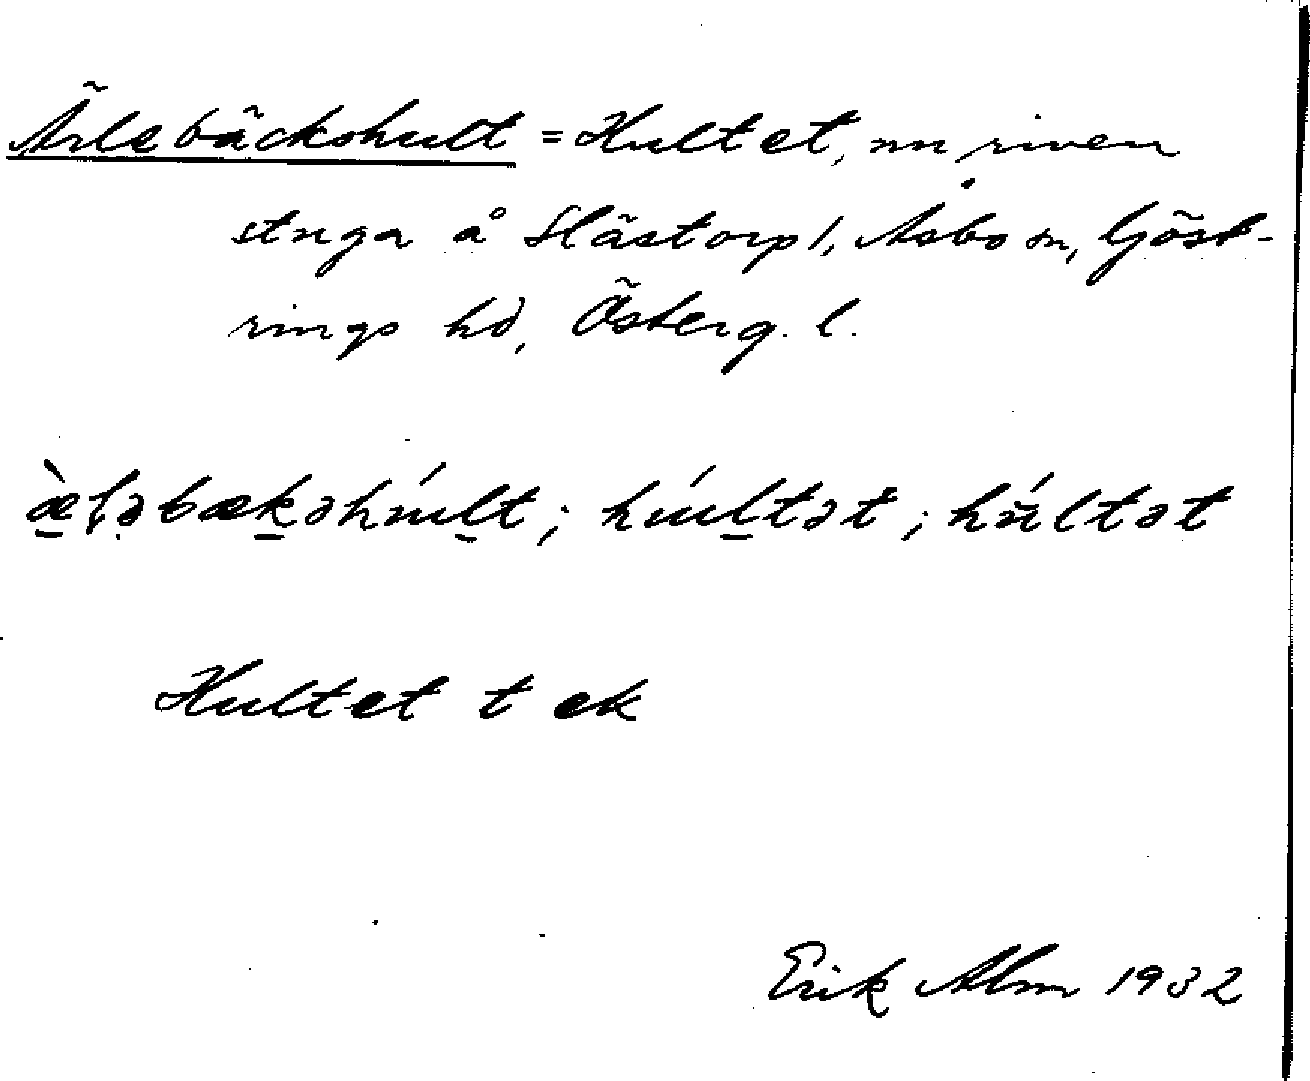 Ärlebäckshult = Hultet, nu riven
stuga å Slästorp 1, Åsbo sn, Göst-
rings hd, Österg. l.
æ̀lebækəhúlt; húltət; húltət
Hultet t ek
Erik Alm 1932